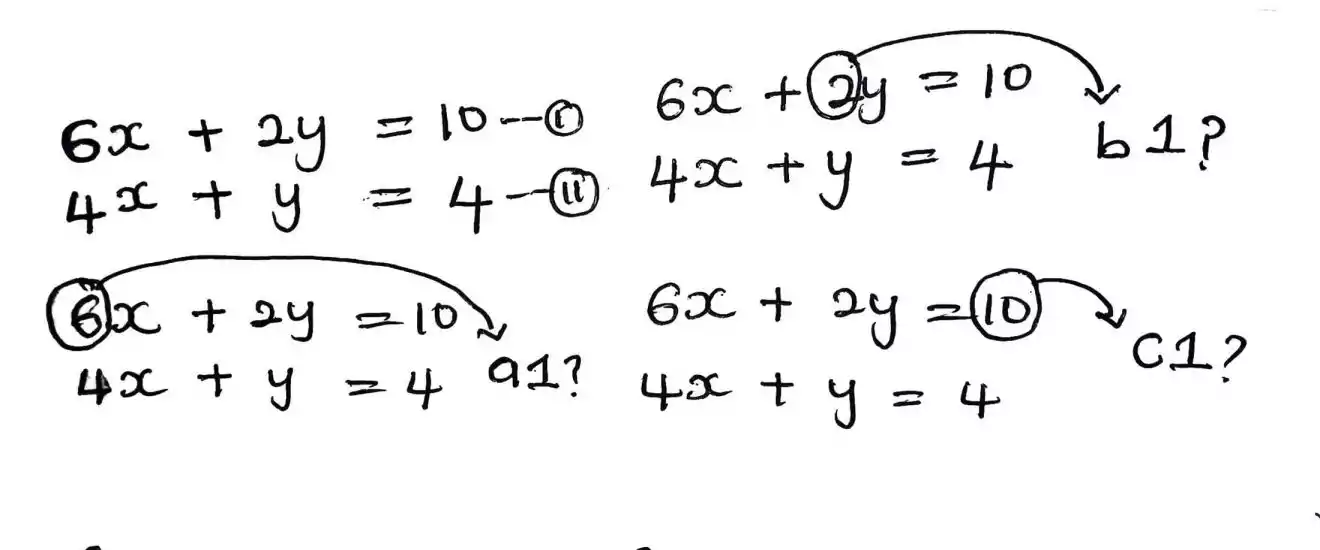 6x + 2y = 10 --- (i)
4x + y = 4 --- (ii)
6x + 2y = 10
4x + y = 4 b1?
6x + 2y = 10
4x + y = 4 a1?
6x + 2y = 10
4x + y = 4 c1?